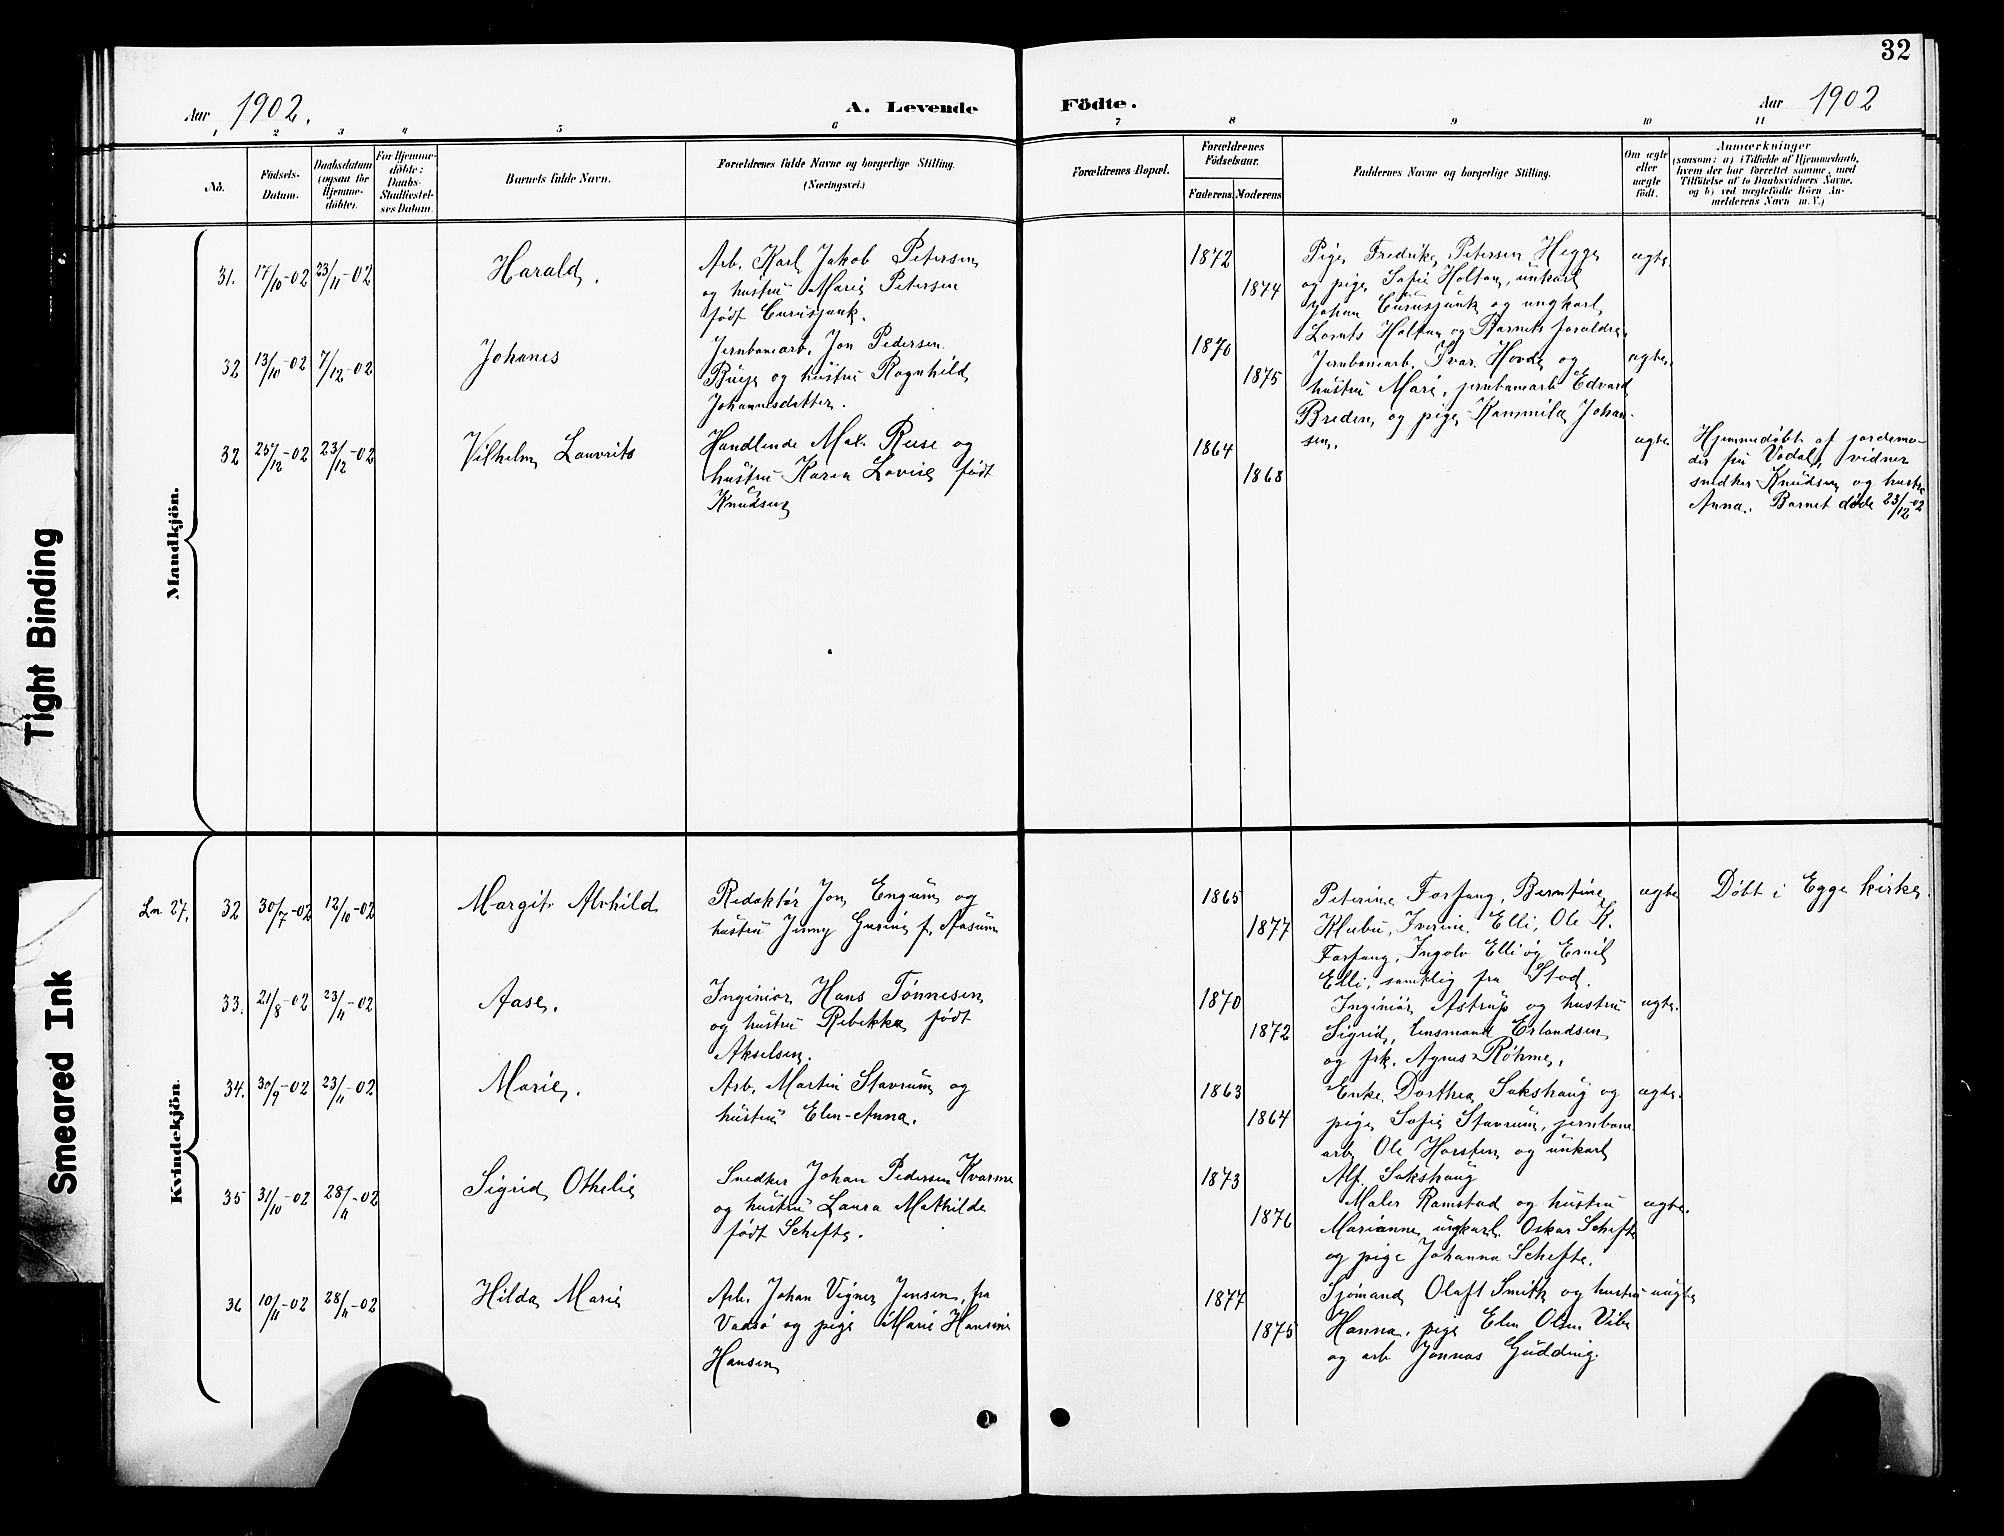 32
Aar 1902. A. Levende Födte. Aar 1902
1 2 3 4 5 6 7 8 9 10 11
No.
Födsels-Datum.
Daabsdatum (ogsaa for Hjemme-döbte).
For Hjemme-döbte: Daabs-Stadfæstel-ses Datum.
Barnets fulde Navn.
Forældrenes fulde Navne og borgerlige Stilling.
(Næringsvei.)
Forældrenes Bopæl.
Forældrenes Födselsaar.
Faderens. Moderens.
Faddernes Navne og borgerlige Stilling.
Om ægte eller uægte födt.
Anmærkninger
(saasom: a) i Tilfælde af Hjemmedaab,
hvem der har forrettet samme, med
Tilföielse af to Daabsvidners Navne,
og b) ved uægtefödte Börn An-
melderens Navn m. V.)
Mandkjön.
31. 17/10-02 23/11-02 Harald.
Arb. Karl Jakob Petersen
og hustru Marie Petersen
født
1872
1874
Pige Fredrikke Petersen Hegge
og pige Sofie Holtan, unkarl
Johan og ungkarl
Lornts Holtan og Barnets foraldre
ægte
32 13/10-02 7/12-02 Johanes
Jernbanearb. Jon Pedersen
og hustru Ragnhild
Johannesdatter.
1870
1875
Jernbanearb. Ivar Hovde og
hustru Mari, jernbanearb Edvard
Breden, og pige Kammila Johan-
sen.
ægte.
32 25/12-02 23/12-02 Vilhelm Lauvrits
Handlende Max Ruse og
hustru Karen Lovise født
Knudsen
1864
1868
ægte
Hjemmedøbt af jordemo-
der fru Vodal, vidner
snedker Knudsen og hustru
Anna. Barnet døde 23/12-02
Kvindekjön.
Ln 27, 32 30/7-02 12/10-02 Margit Alvhild
Redaktør Jon Engum og
hustru Jenny Gurine f. Aasum
1865
1877
Peterine Forfang, Berntine
Klubu, Iverine Elli, Ole K.
Forfang, Ingolv Elli og Emil
Elli, samtlig fra Stod.
ægte
Døbt i Egge kirke.
33. 21/8-02 23/11-02 Aase.
Inginiør Hans Tønnesen
og hustru Rebekka født
Akselsen.
1870
1872
Inginiør Astrup og hustru
Sigrid, Lensmand Erlandsen
og frk. Agnes Røhme.
ægte.
34. 30/9-02 23/11-02 Marie.
Arb. Martin Stavrum og
hustru Elen-Anna.
1863
1864
Enke Dorthea Sakshaug og
pige Sofie Stavrum, jernbane
arb Ole Horsten og unkarl
Alf. Sakshaug
ægte.
35 31/10-02 28/11-02 Sigrid Othelie
Snedker Johan Pedersen Kvarme
og hustru Laura Mathilde
født Schefte.
1873
1876
Maler Ramstad og hustru
Marianne, ungkarl Oskar Schefte
og pige Johanna Schefte.
ægte.
36 10/11-02 28/11-02 Hilda Marie
Arb. Johan Vigner Jensen, fra
Vadsø og pige Marie Hansine
Hansen
1877
1875
Sjømand Olaft Smith og hustru
Hanna, pige Elen Olsen Vibe
og arb Jonnas Gudding.
uægte
Tight Binding
Smeared Ink